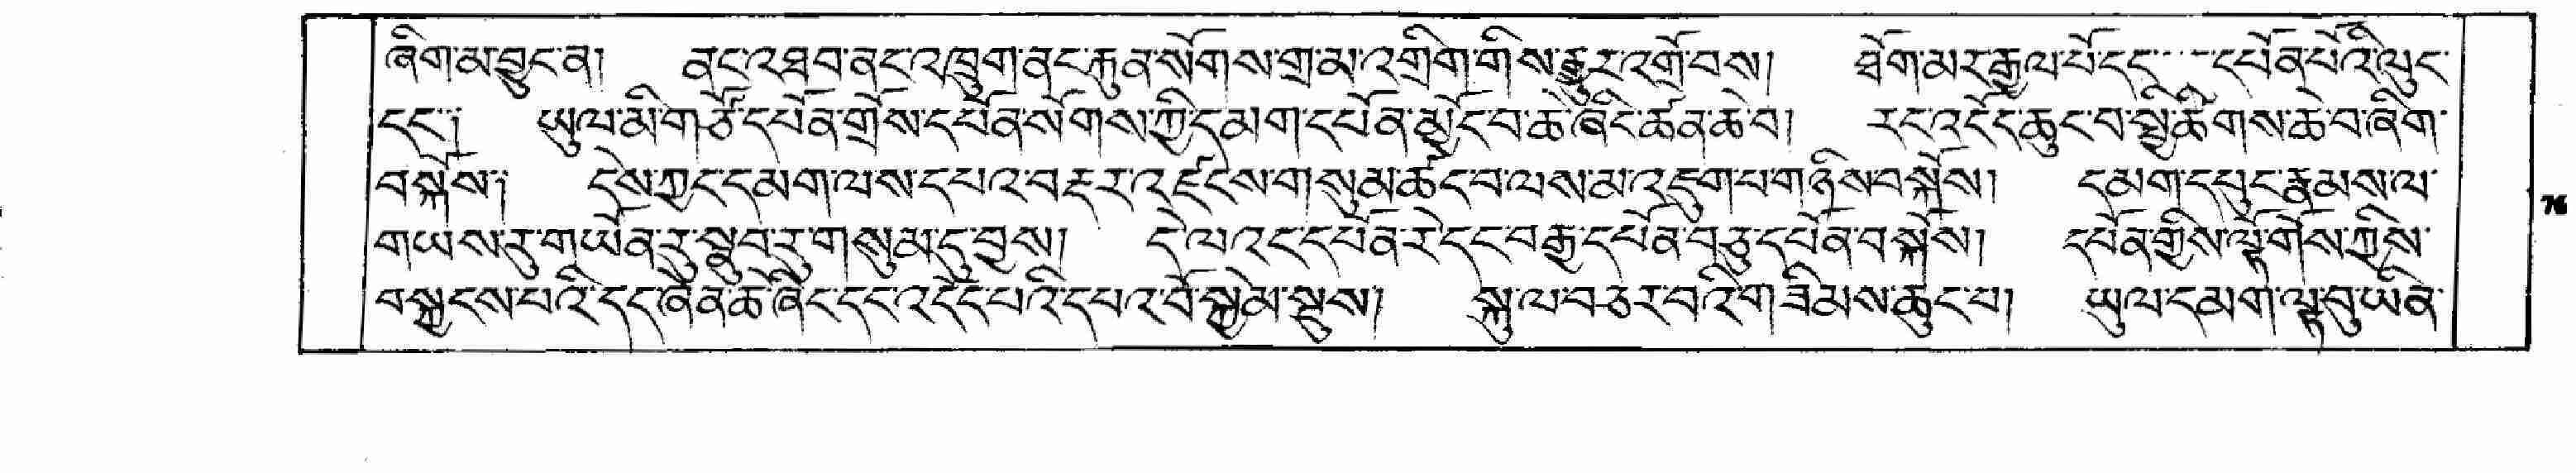 ཞིག་མ་བྱུང་ན། ནང་འཐབ་ནང་འཁྲུག་ནང་རྐུན་སོགས་གྲ་མ་འགྲིག་གིས་རྒྱུར་འགྲོ་བས། ཐོག་མར་རྒྱལ་པོ་དང་་་དཔོན་པོའི་ལུང་
དང་། ཡུལ་མི་གཙོ་དཔོན་གྲོས་དཔོན་སོགས་ཀྱི་དམག་དཔོན་མྱོང་བ་ཆེ་ཞིང་ཚན་ཆེ་བ། རང་འདོད་ཆུང་བ་སྤྱི་ཚིགས་ཆེ་བ་ཞིག་
བསྐོས། དེས་ཀྱང་དམག་ལས་དཔའ་བརྡར་འཛངས་གསུམ་ཚད་བ་ལས་མ་འདྲུག་པ་གཉིས་བསྐོས། དམག་དཔུང་རྣམས་ལ་
གཡས་རུ་གཡོན་རུ་སྣུབ་རུ་གསུམ་དུ་བྱས། དེ་ལའང་དཔོན་རེ་དང་བརྒྱ་དཔོན་བཅུ་དཔོན་བསྐོས། དཔོན་གྱིས་ལྟོ་གོས་ཀྱིས་
བསྐྱངས་པའི་དང་ཞེན་ཆེ་ཞིང་དང་འདོད་པའི་དཔའ་བོ་སྐྱེམ་སྡུས། སྐུ་ལ་བཅར་བའི་གཟིམས་ཆུང་བ། ཡུལ་དམག་ལྟ་བུ་ཡིན་
76